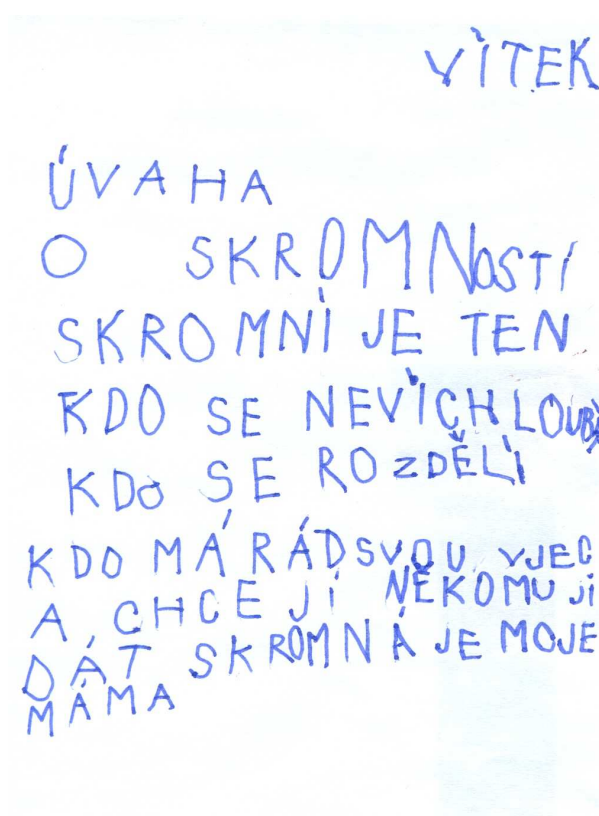 VÍTEK
ÚVAHA
O SKROMNOSTÍ
SKROMNÍ JE TEN
KDO SE NEVÍCHLOUBÁ
KDO SE ROZDĚLÍ
KDO MÁ RÁD SVOU VJEC
A CHCE JÍ NĚKOMU JÍ
DÁT SKROMNÁ JE MOJE
MÁMA